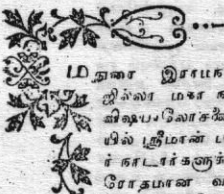 மதுரை இராமந
ஜில்லா மகா
விஷயலோச
யில் ஸ்ரீமான்
ர் நாடார்களுக்
ரோதமான